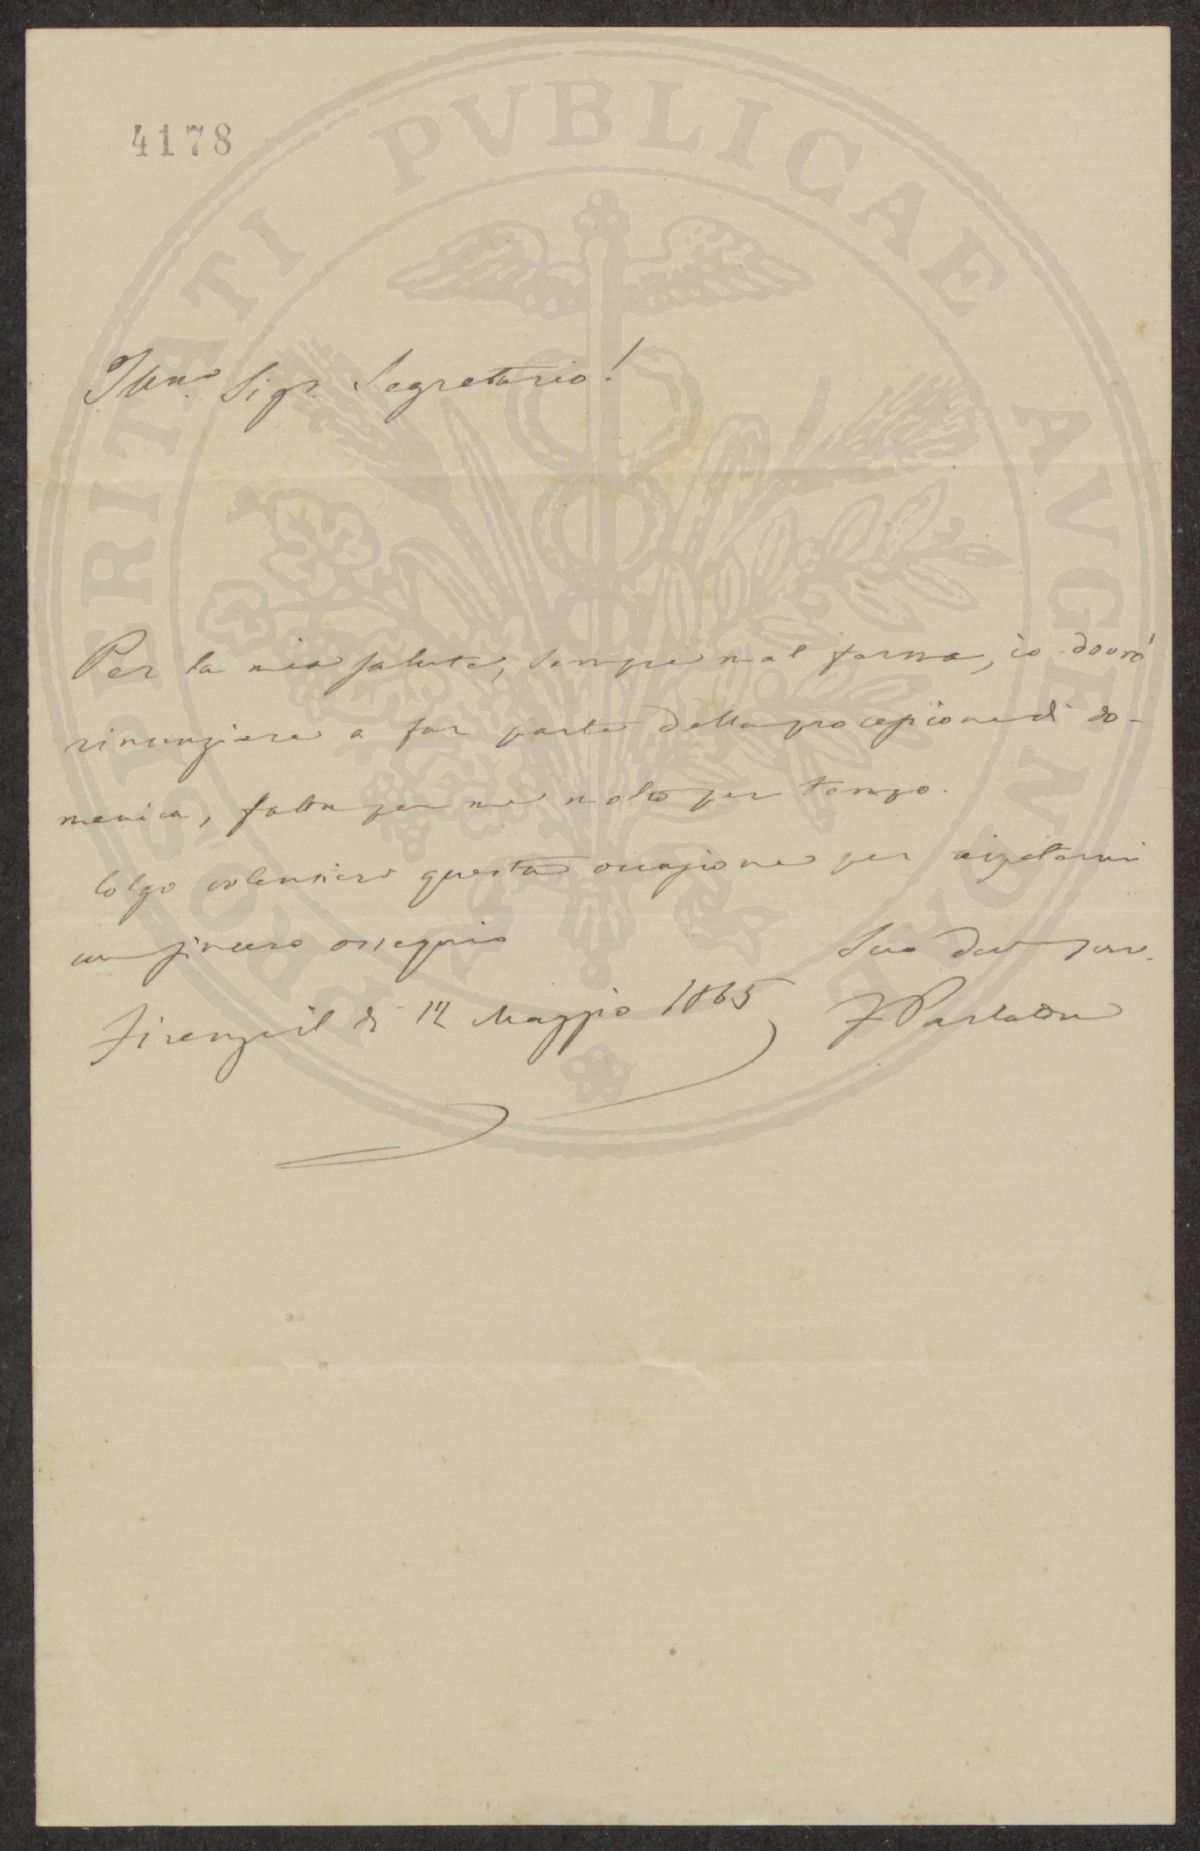 4178
PROSPERITATI PVBLICAE AVGENDAE
Illmo. Sigr. Segretario!
Per la mia salute, sempre mal ferma, io dovrò
rinunziare a far parte della processione di do-
menica, fatta per me molto per tempo.
Colgo volentieri questa occasione per ripetermi
con sincero ossequio
Suo dev. serv.
Firenze il dì 12 Maggio 1865
FParlatore